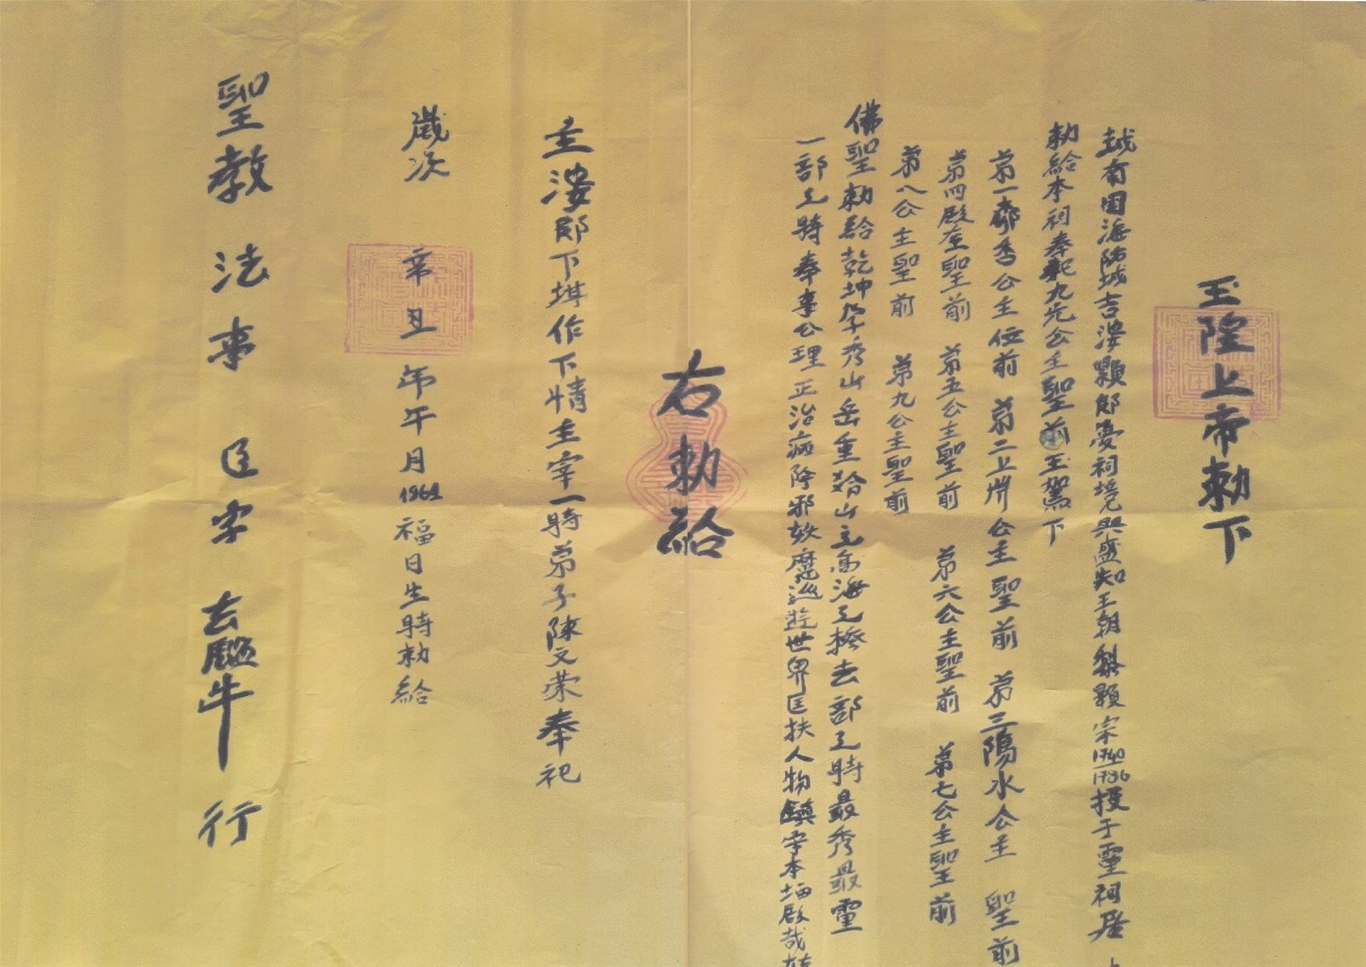 玉陛上帝勅下
越南国海防城吉婆顆郎憂祠境興盛知王朝黎顯宗1740 1786授于靈祠居
勅給本祠奉祀九先公主聖前玉駕下
第一鄰香公主位前 第二上岸公主聖前 第三陽水公主 聖前
第四殿左聖前 第五公主聖前 第六公主聖前 第七公主聖前
第八公主聖前 第九公主聖前
佛聖勅給乾坤孕秀山岳重給山之高海之撩去部之時最秀最靈
一部之時奉事公理正治病除邪妖魔巡遊世界匡扶人物鎮守本
右勅給
主婆郎下堪作下情主宰一時弟子陳文荣奉祀
歲次 年午月1961福日生時勅給
聖教法事臣字去 牛行